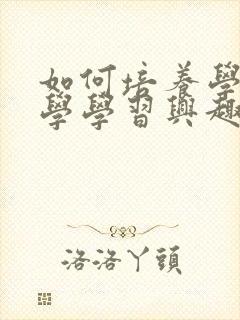 如何培养學
學學習興趣
洛洛丫頭